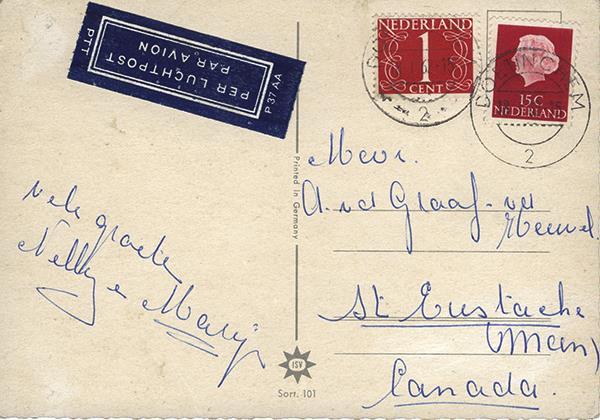 PTT
PER LUCHTPOST
PAR AVION
P 37 AA
NEDERLAND
1
CENT
15 C
NEDERLAND
2
2
Printed in Germany
vele groeten
Nelly e Marij
Mevr.
A. v d Graaf - v d
Heuvel.
St Eustache
(Man)
Canada.
ISV
Sort. 101